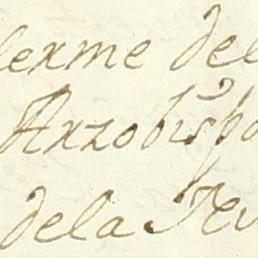 lexme del
Arzobispo
dela Teu